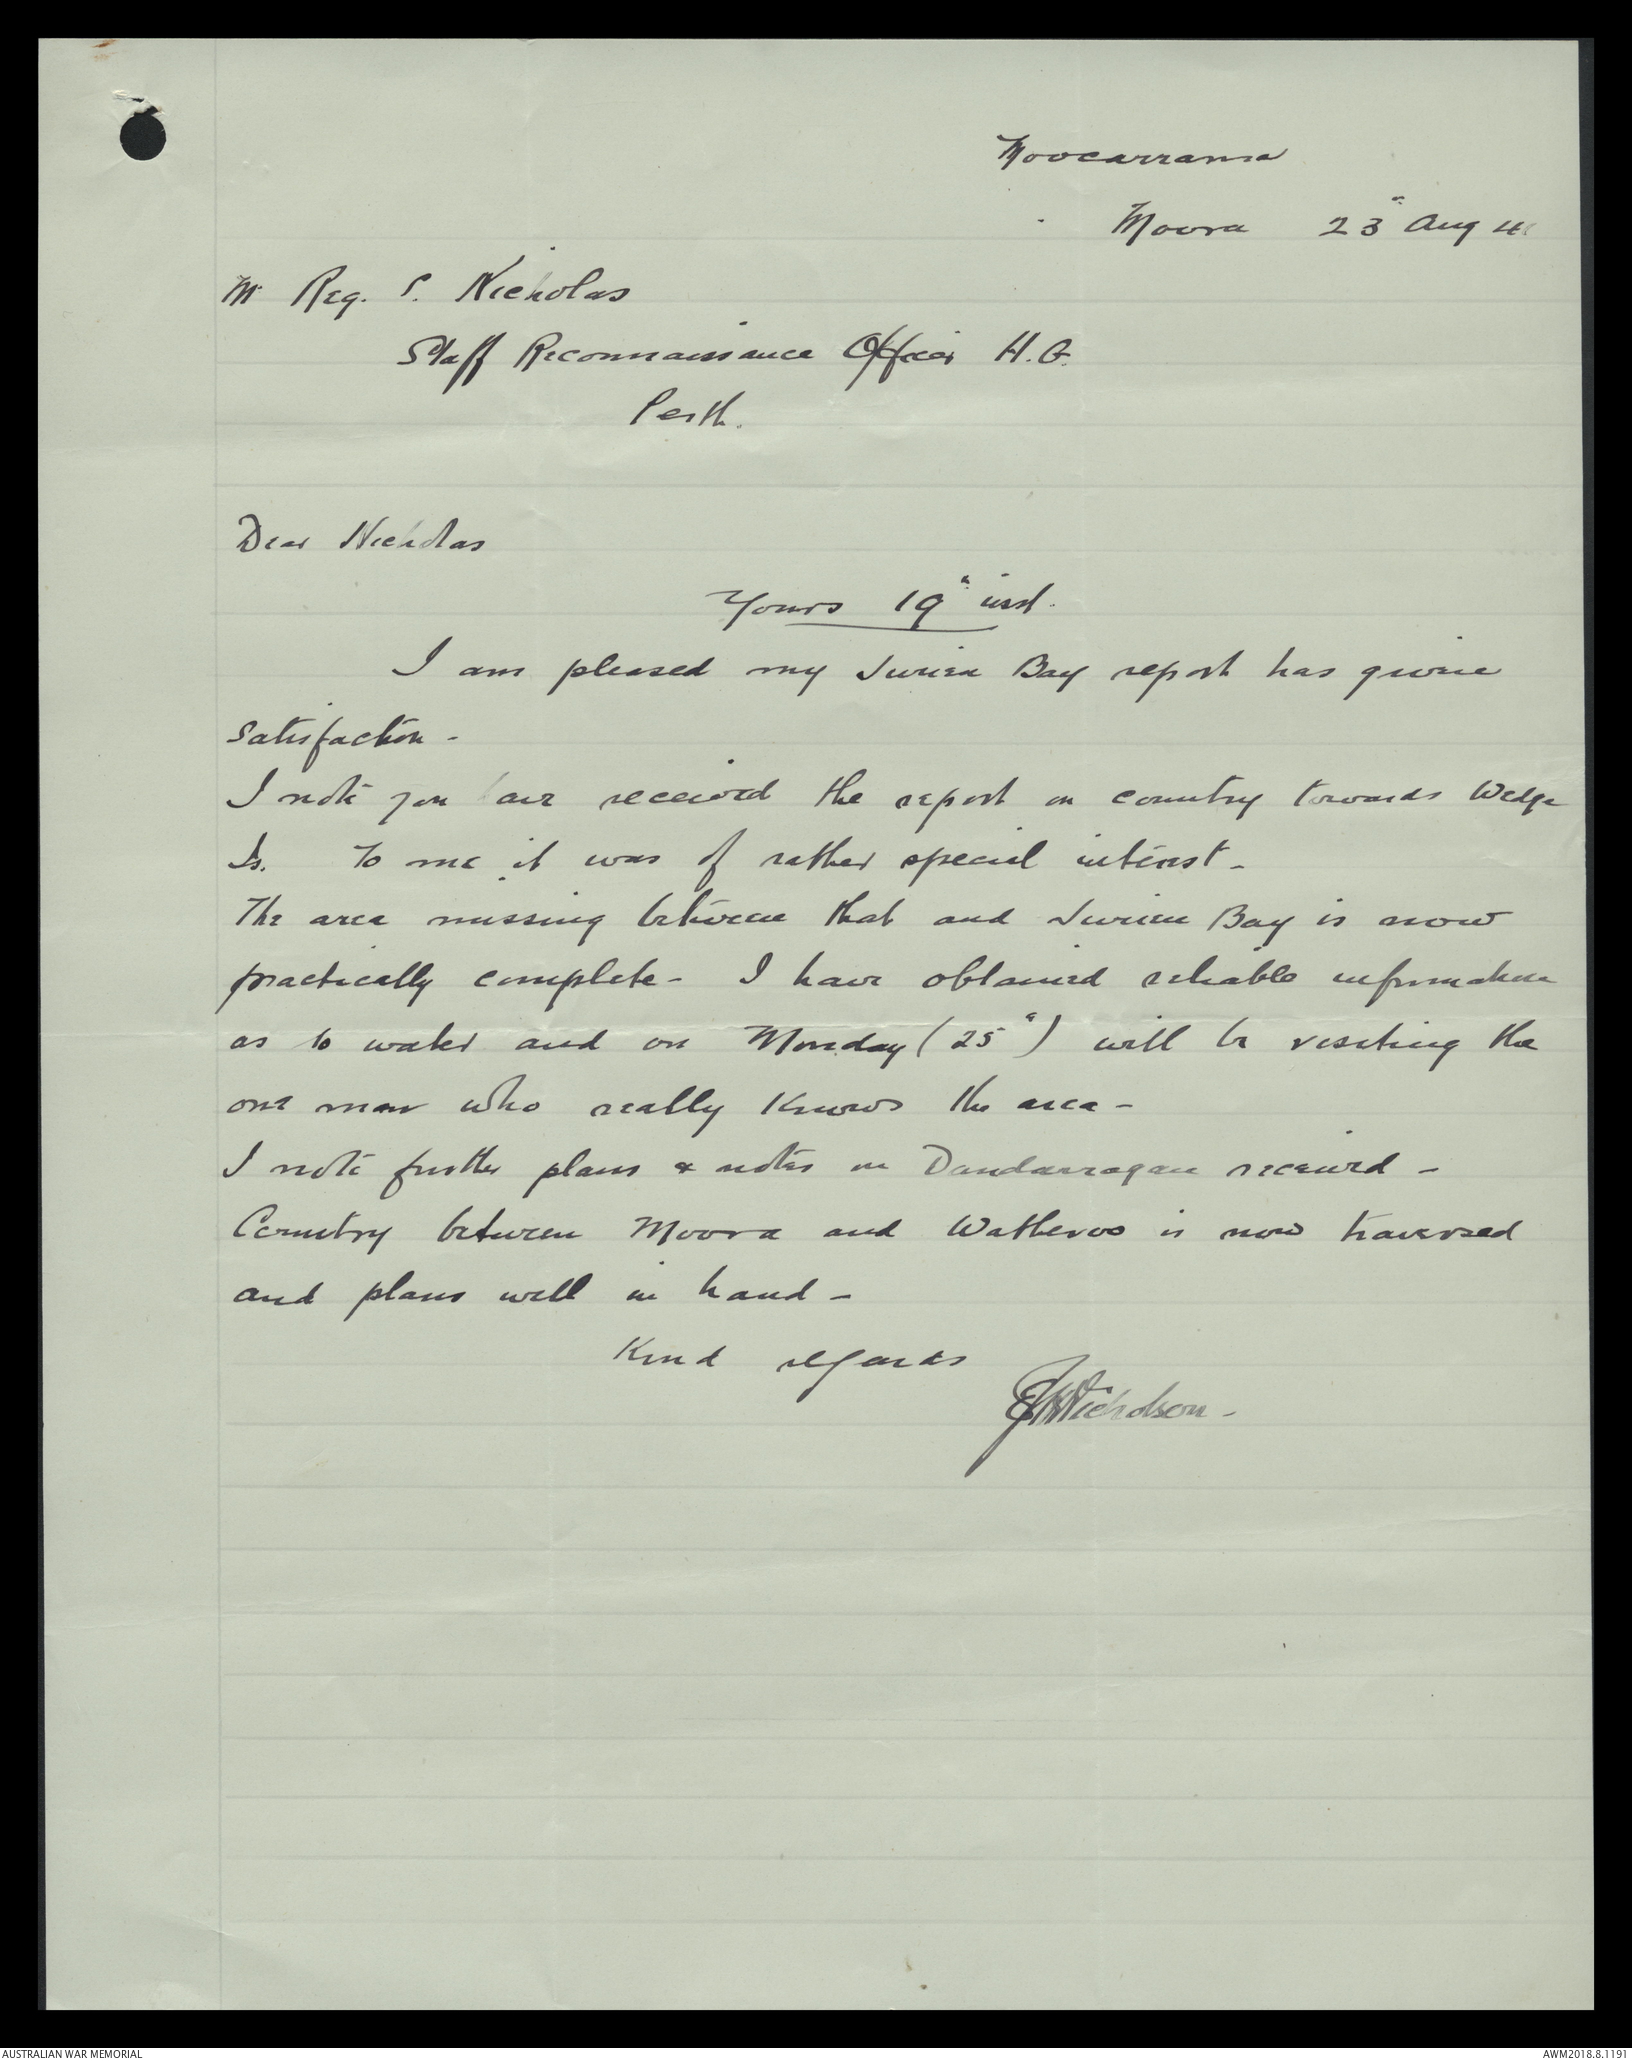 Moocarrama
Moora 23" Aug 41
Mr Reg. S. Nicholas
Staff Reconnaissance Officer H.G.
Perth.
Dear Nicholas
Yours 19" inst.
I am pleased my Jurien Bay report has given
satisfaction -
I note you have received the report on country towards Wedge
Is. To me it was of rather special interest -
The area missing between that and Jurien Bay is now
practically complete - I have obtained reliable information
as to water and on Monday (25") will be visiting the
one man who really knows the area -
I note further plans & notes on Dandarragan received -
Country between Moora and Watheroo is now traversed
and plans well in hand -
Kind regards
Nicholson -
AUSTRALIAN WAR MEMORIAL
AWM2018.8.1191